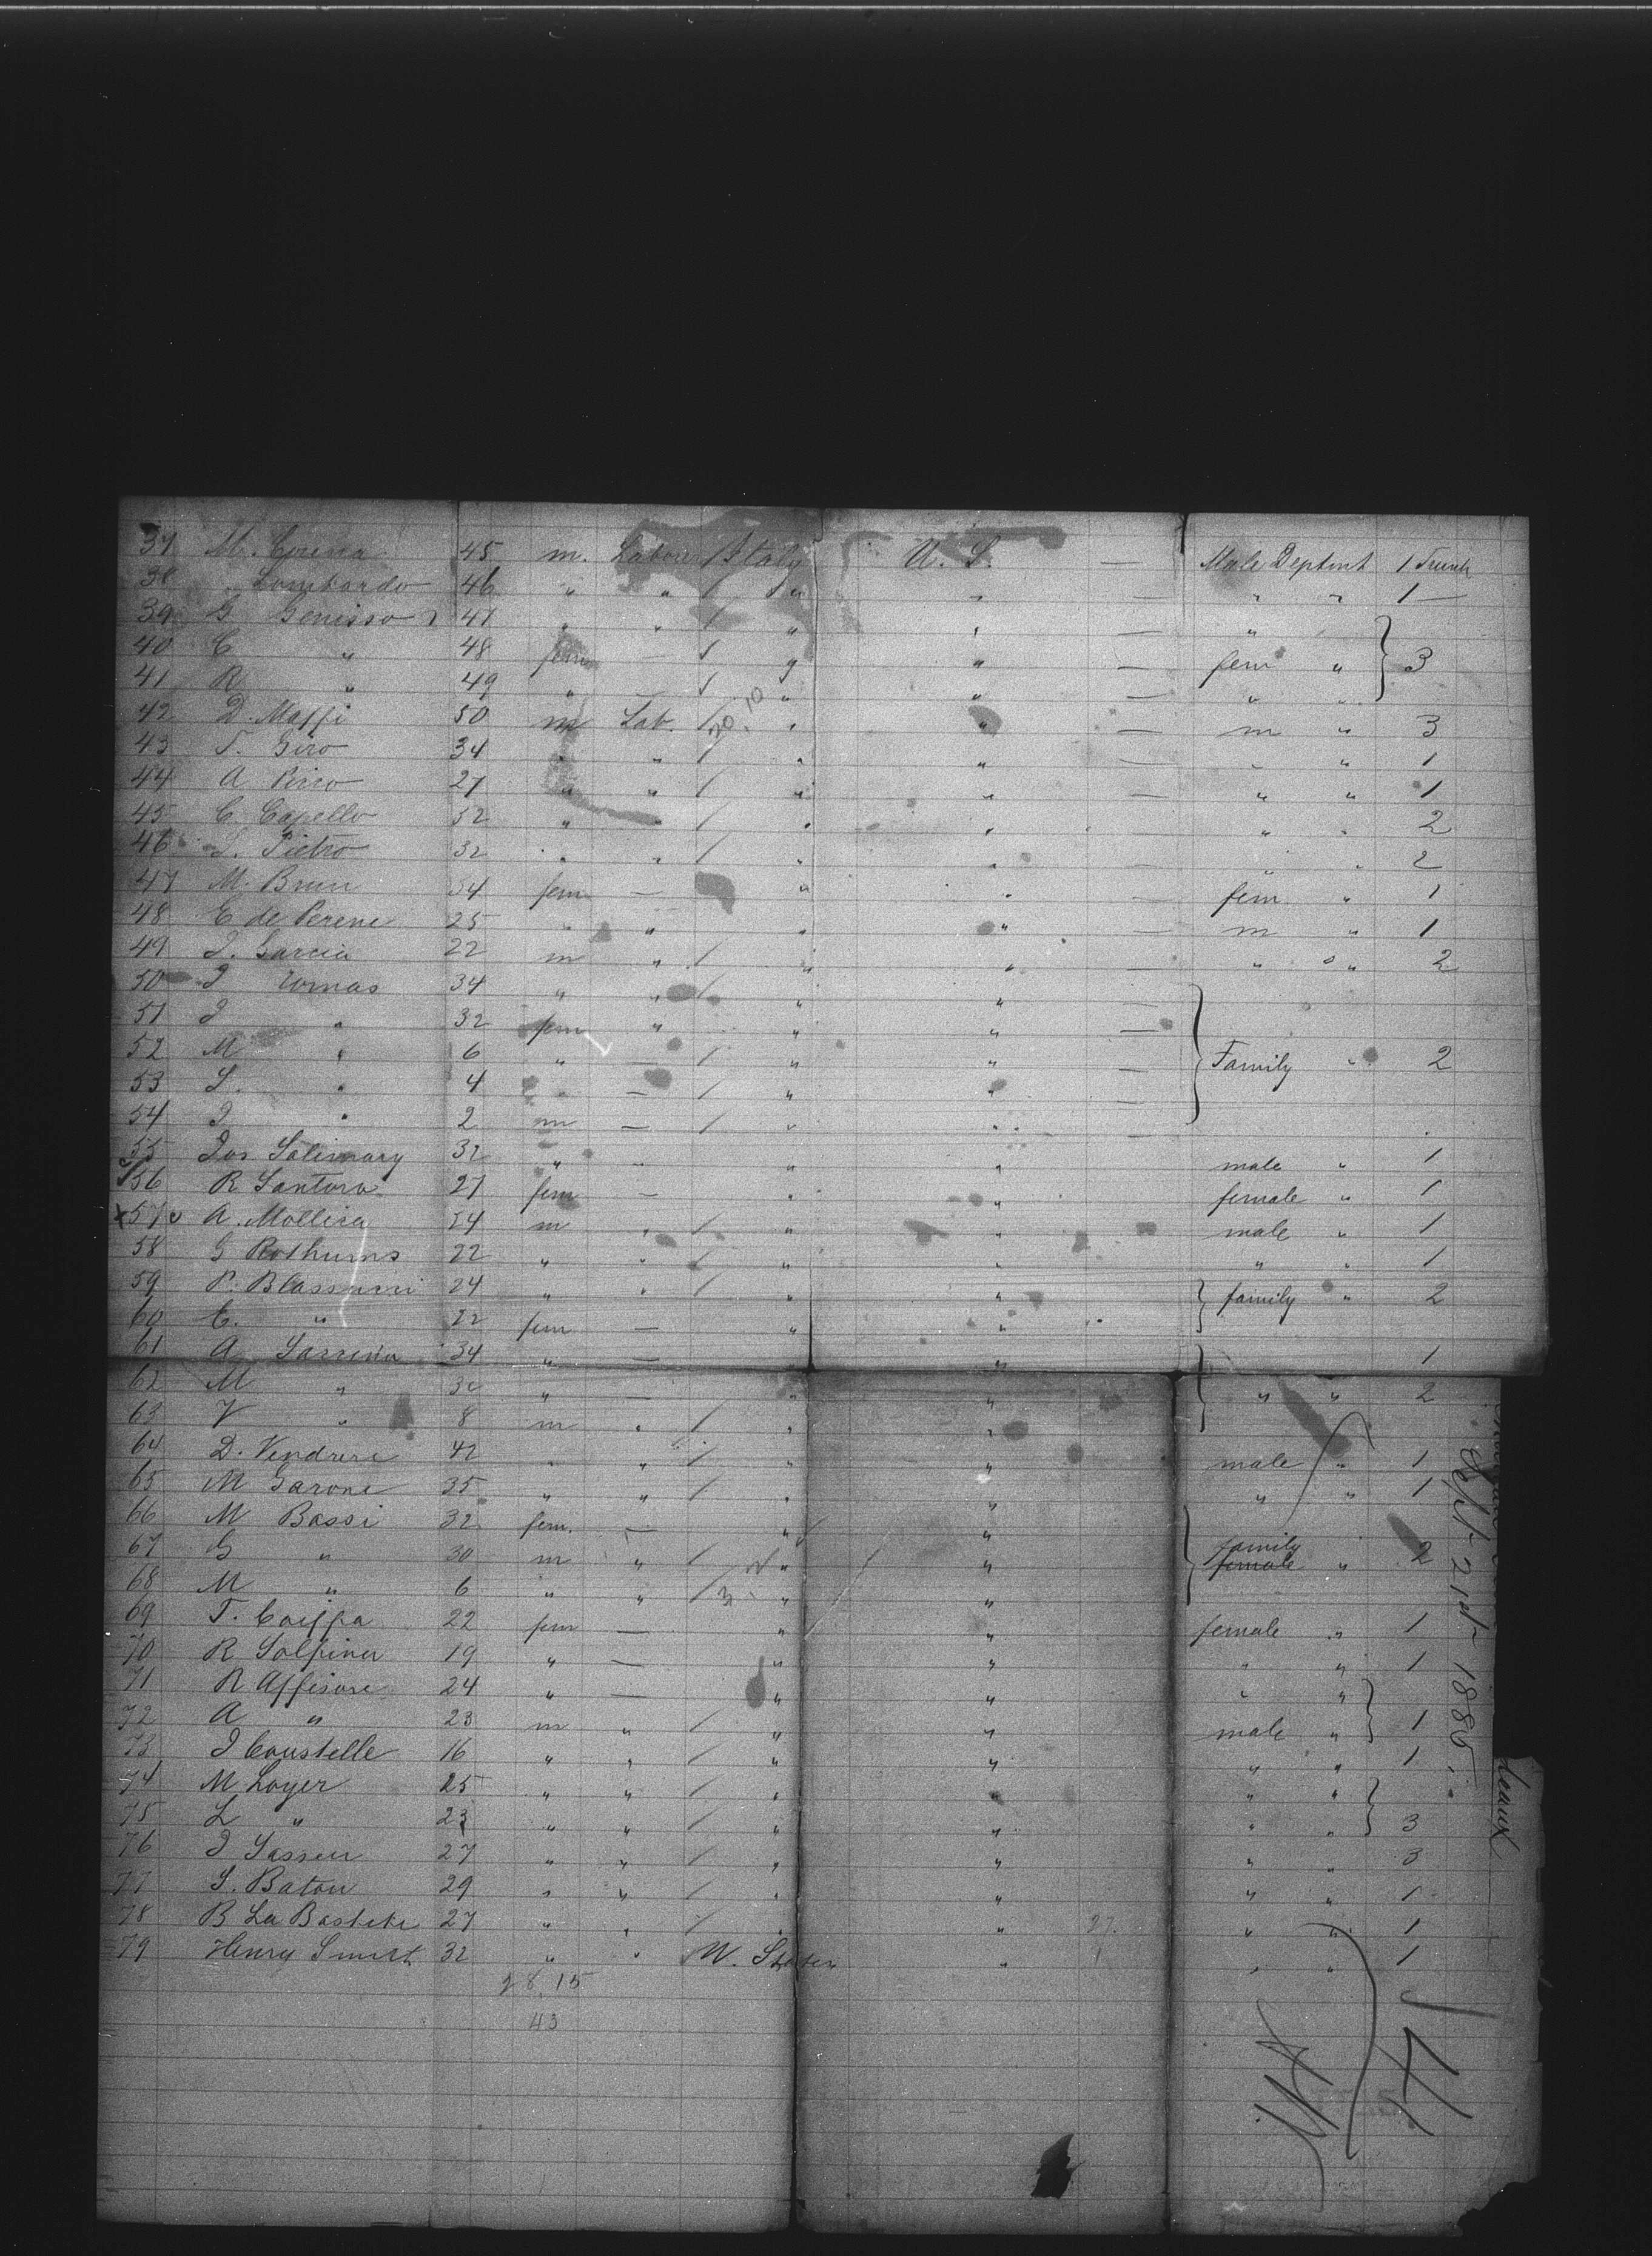 37 M. Cirena 45 m. Labour / Italy U. S. — Male Deptmt 1 Trunk
38 " Lombardo 46 " " / " " — " " 1 —
39 G Genisso 47 " " / " " — " "
40 C " 48 fem — / " " — fem " } 3
41 R " 49 " — / " " — " "
42 D. Maffi 50 m Lab. / " " — m " 3
43 T. Giro 34 " " / " " — " " 1
44 A Pirro 27 " " / " " — " " 1
45 C Capello 52 " " / " " — " " 2
46 S. Pietro 32 " " / " " — " " 2
47 M. Brun 54 fem — " " — fem " 1
48 E de Perene 25 " " " " — m " 1
49 J. Garcia 22 m " / " " — " " 2
50 J Tomas 34 " " / " " —
51 J " 32 fem " " " —
52 M " 6 " — / " " — } Family " 2
53 L. " 4 " — / " " —
54 J " 2 m — / " " —
55 Jos Salimary 32 " " " " male " 1
56 R Santora 27 fem — " " female " 1
x 57 A. Mollica 24 m " / " " male " 1
58 G Rothums 22 " " / " " " " 1
59 P. Blassini 24 " " / " " } family " 2
60 C. " 22 fem — " "
61 A Sarrena 34 " — " 1
62 M " 30 " — " " " " 2
63 V " 8 m " / " "
64 D. Vendrere 42 " " / " " male " 1
65 M Garone 35 " " / " " " " 1
66 M Bassi 32 fem. — " "
67 G " 30 m " / " " } family female " 2
68 M " 6 " " / " "
69 T. Coiffa 22 fem — " " female " 1
70 R Salpina 19 " — " " " " 1
71 R Affisore 24 " — " " " "
72 A " 23 m " / " " male " } 1
73 J Coustelle 16 " " / " " " " 1
74 M Loyer 25 " " / " " " "
75 L " 23 " " / " " " " } 3
76 J Sasseu 27 " " / " " " " 3
77 S. Batou 29 " " / " " " " 1
78 B La Basteke 27 " " / " " 27. " " 1
79 Henry Smith 32 " " U. States " 1 " " 1
28, 15
43
20.10
Sept 21st 1885
leaux
14